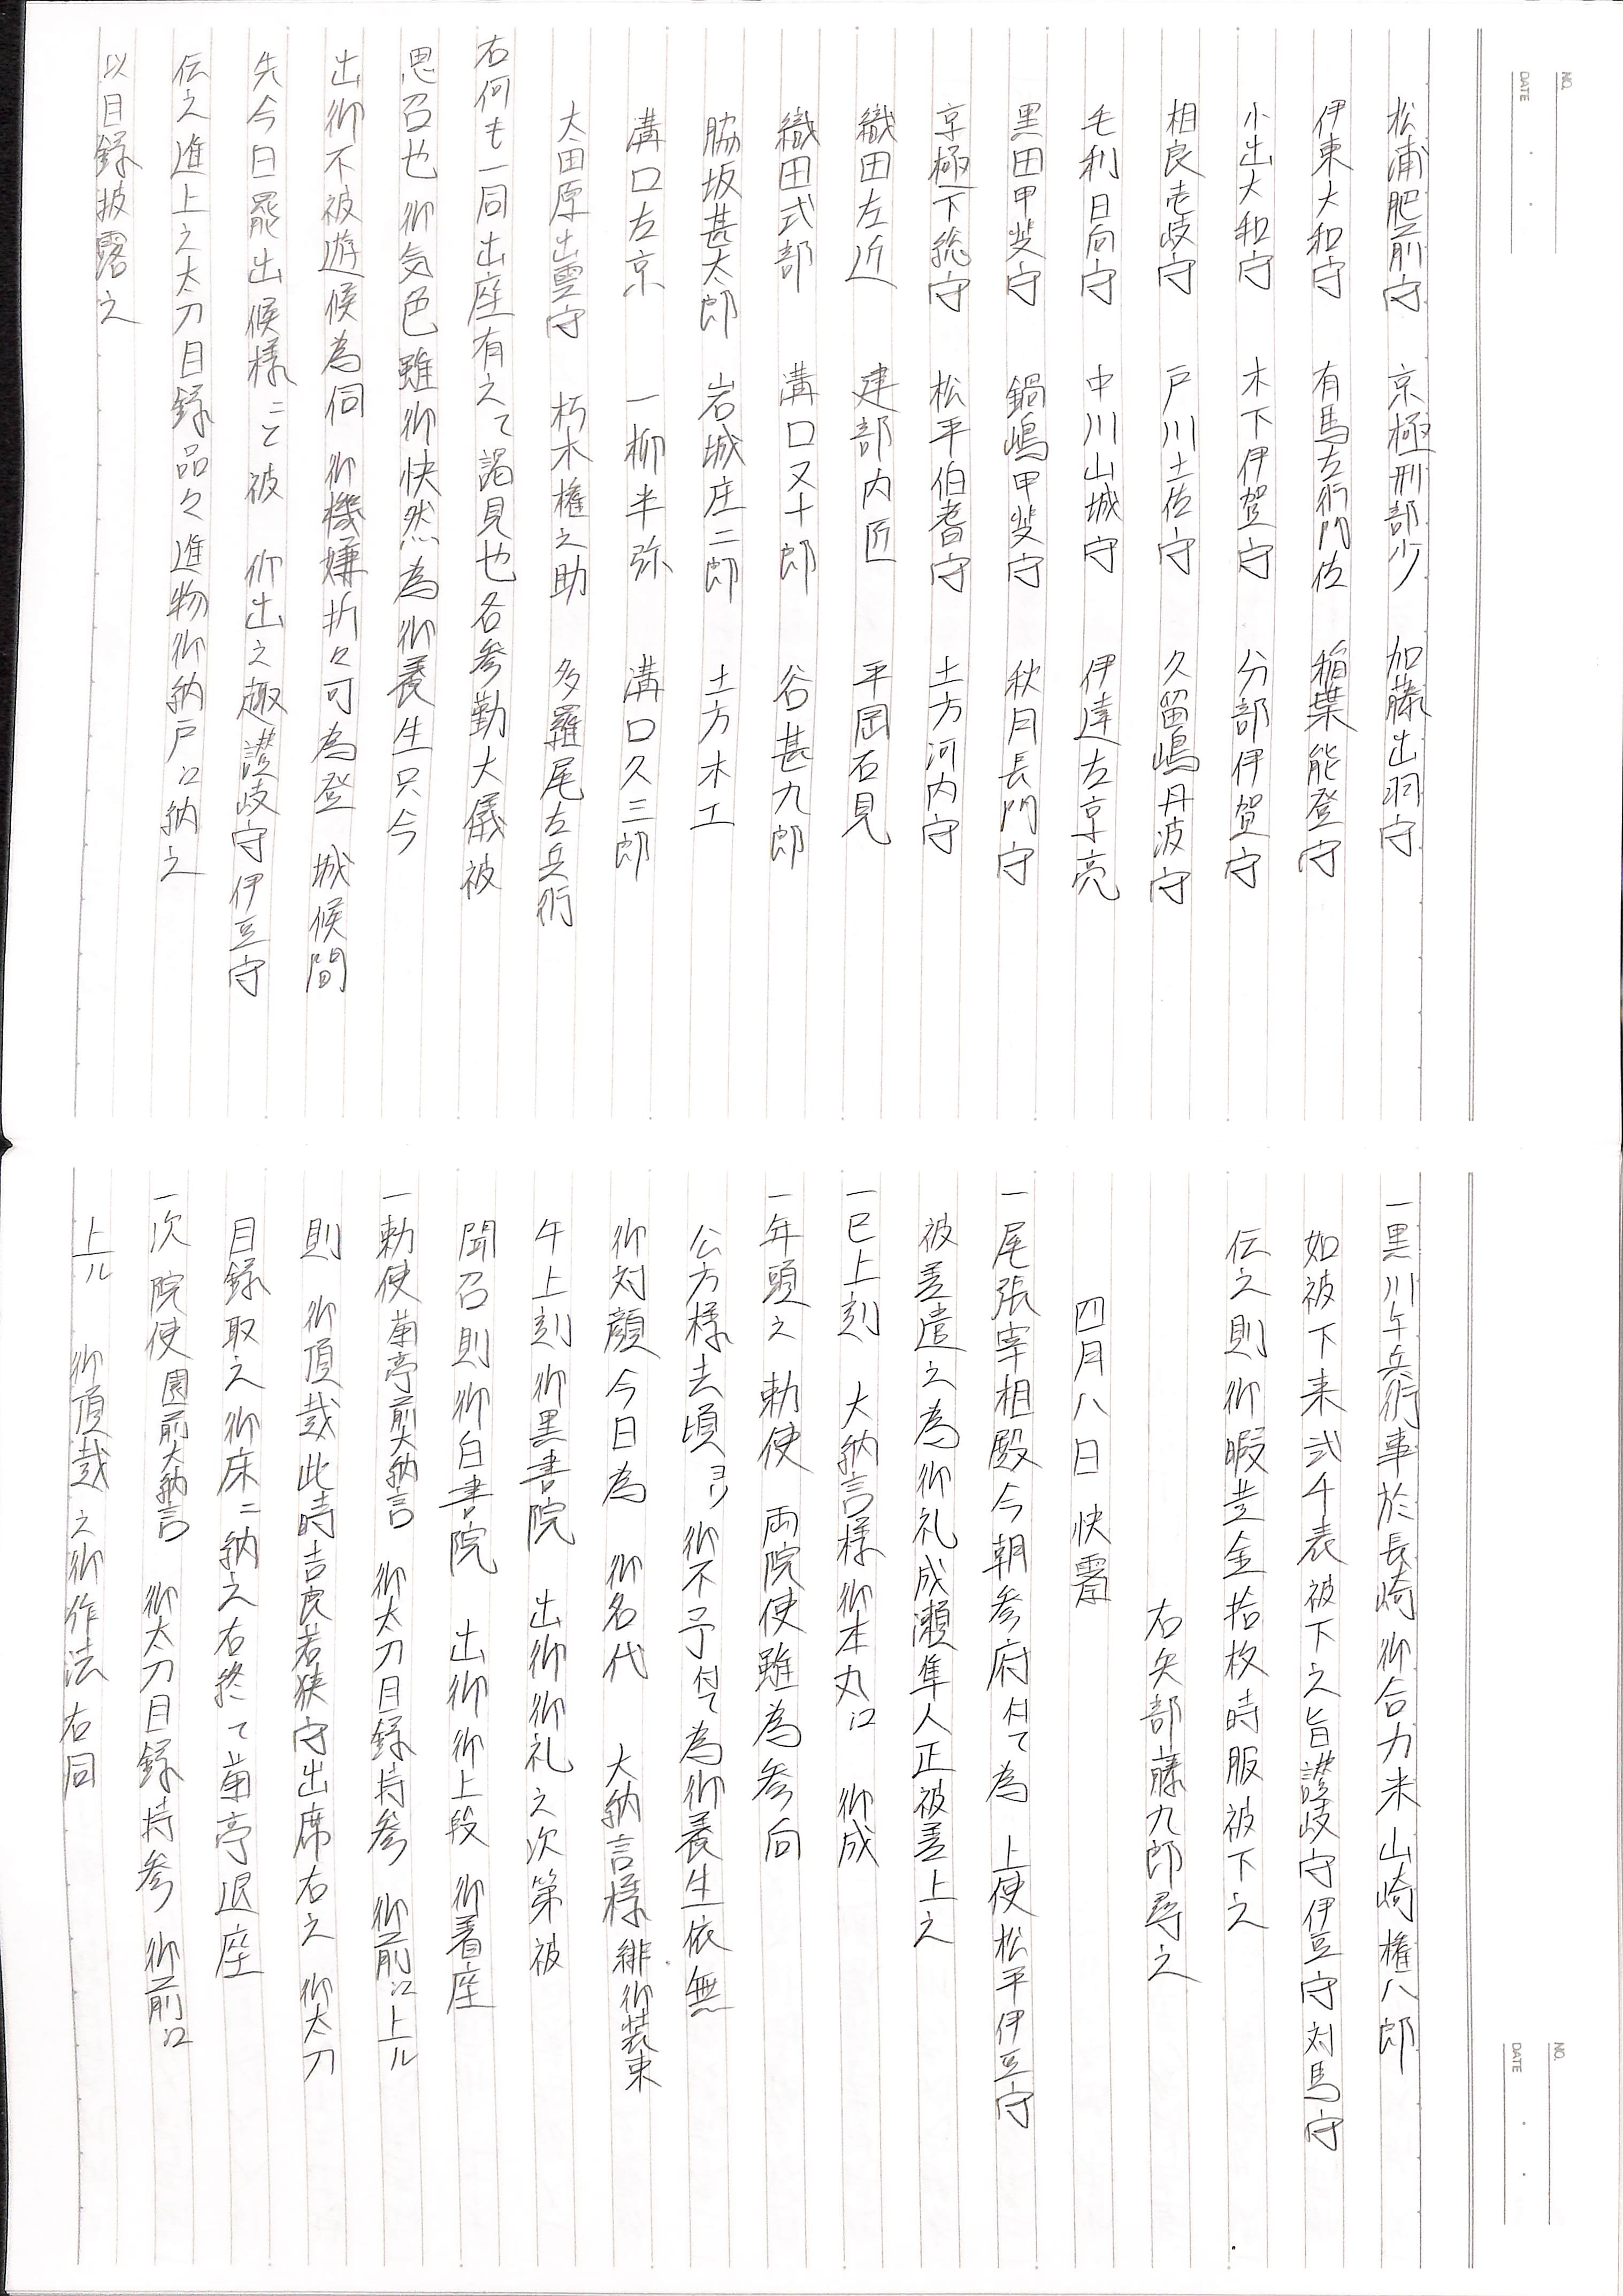 NO.
DATE
松浦肥前守　京極刑部少　加藤出羽守
伊東大和守　有馬左衛門佐　稲葉能登守
小出大和守　木下伊賀守　分部伊賀守
相良壱岐守　戸川土佐守　久留嶋丹波守
毛利日向守　中川山城守　伊達左京亮
黒田甲斐守　鍋嶋甲斐守　秋月長門守
京極下総守　松平伯耆守　土方河内守
織田左近　建部内匠　平岡石見
織田式部　溝口又十郎　谷甚九郎
脇坂甚太郎　岩城庄二郎　土方木工
溝口左京　一柳半弥　溝口久三郎
大田原出雲守　朽木権之助　多羅尾左兵衛
右何も一同出座有之て謁見也各参勤大儀被
思召也御気色雖御快然為御養生只今
出御不被遊候為伺　御機嫌折々可為登　城候間
先今日罷出候様ニと被　仰出之趣讃岐守伊豆守
伝之進上之太刀目録品々進物御納戸江納之
以目録披露之
NO.
DATE
一黒川与兵衛事於長崎　御合力米山崎権八郎
如被下来弐千表被下之旨讃岐守伊豆守対馬守
伝之則御暇黄金拾枚時服被下之
右矢部藤九郎尋之
四月八日　快霽
一尾張宰相殿今朝参府付て為　上使松平伊豆守
被差遣之為御礼成瀬隼人正被差上之
一巳上刻　大納言様御本丸江　御成
一年頭之　勅使　両院使雖為参向
公方様去頃ヨリ御不予付て為御養生依無
御対顔今日為　御名代　大納言様緋御装束
午上刻御黒書院　出御御礼之次第被
聞召則御白書院　出御御上段　御着座
一勅使　菊亭前大納言　御太刀目録持参　御前江上ル
則　御頂戴此時吉良若狭守出席右之　御太刀
目録取之御床ニ納之右終て菊亭退座
一次　院使　園前大納言　御太刀目録持参　御前江
上ル　御頂戴之御作法右同